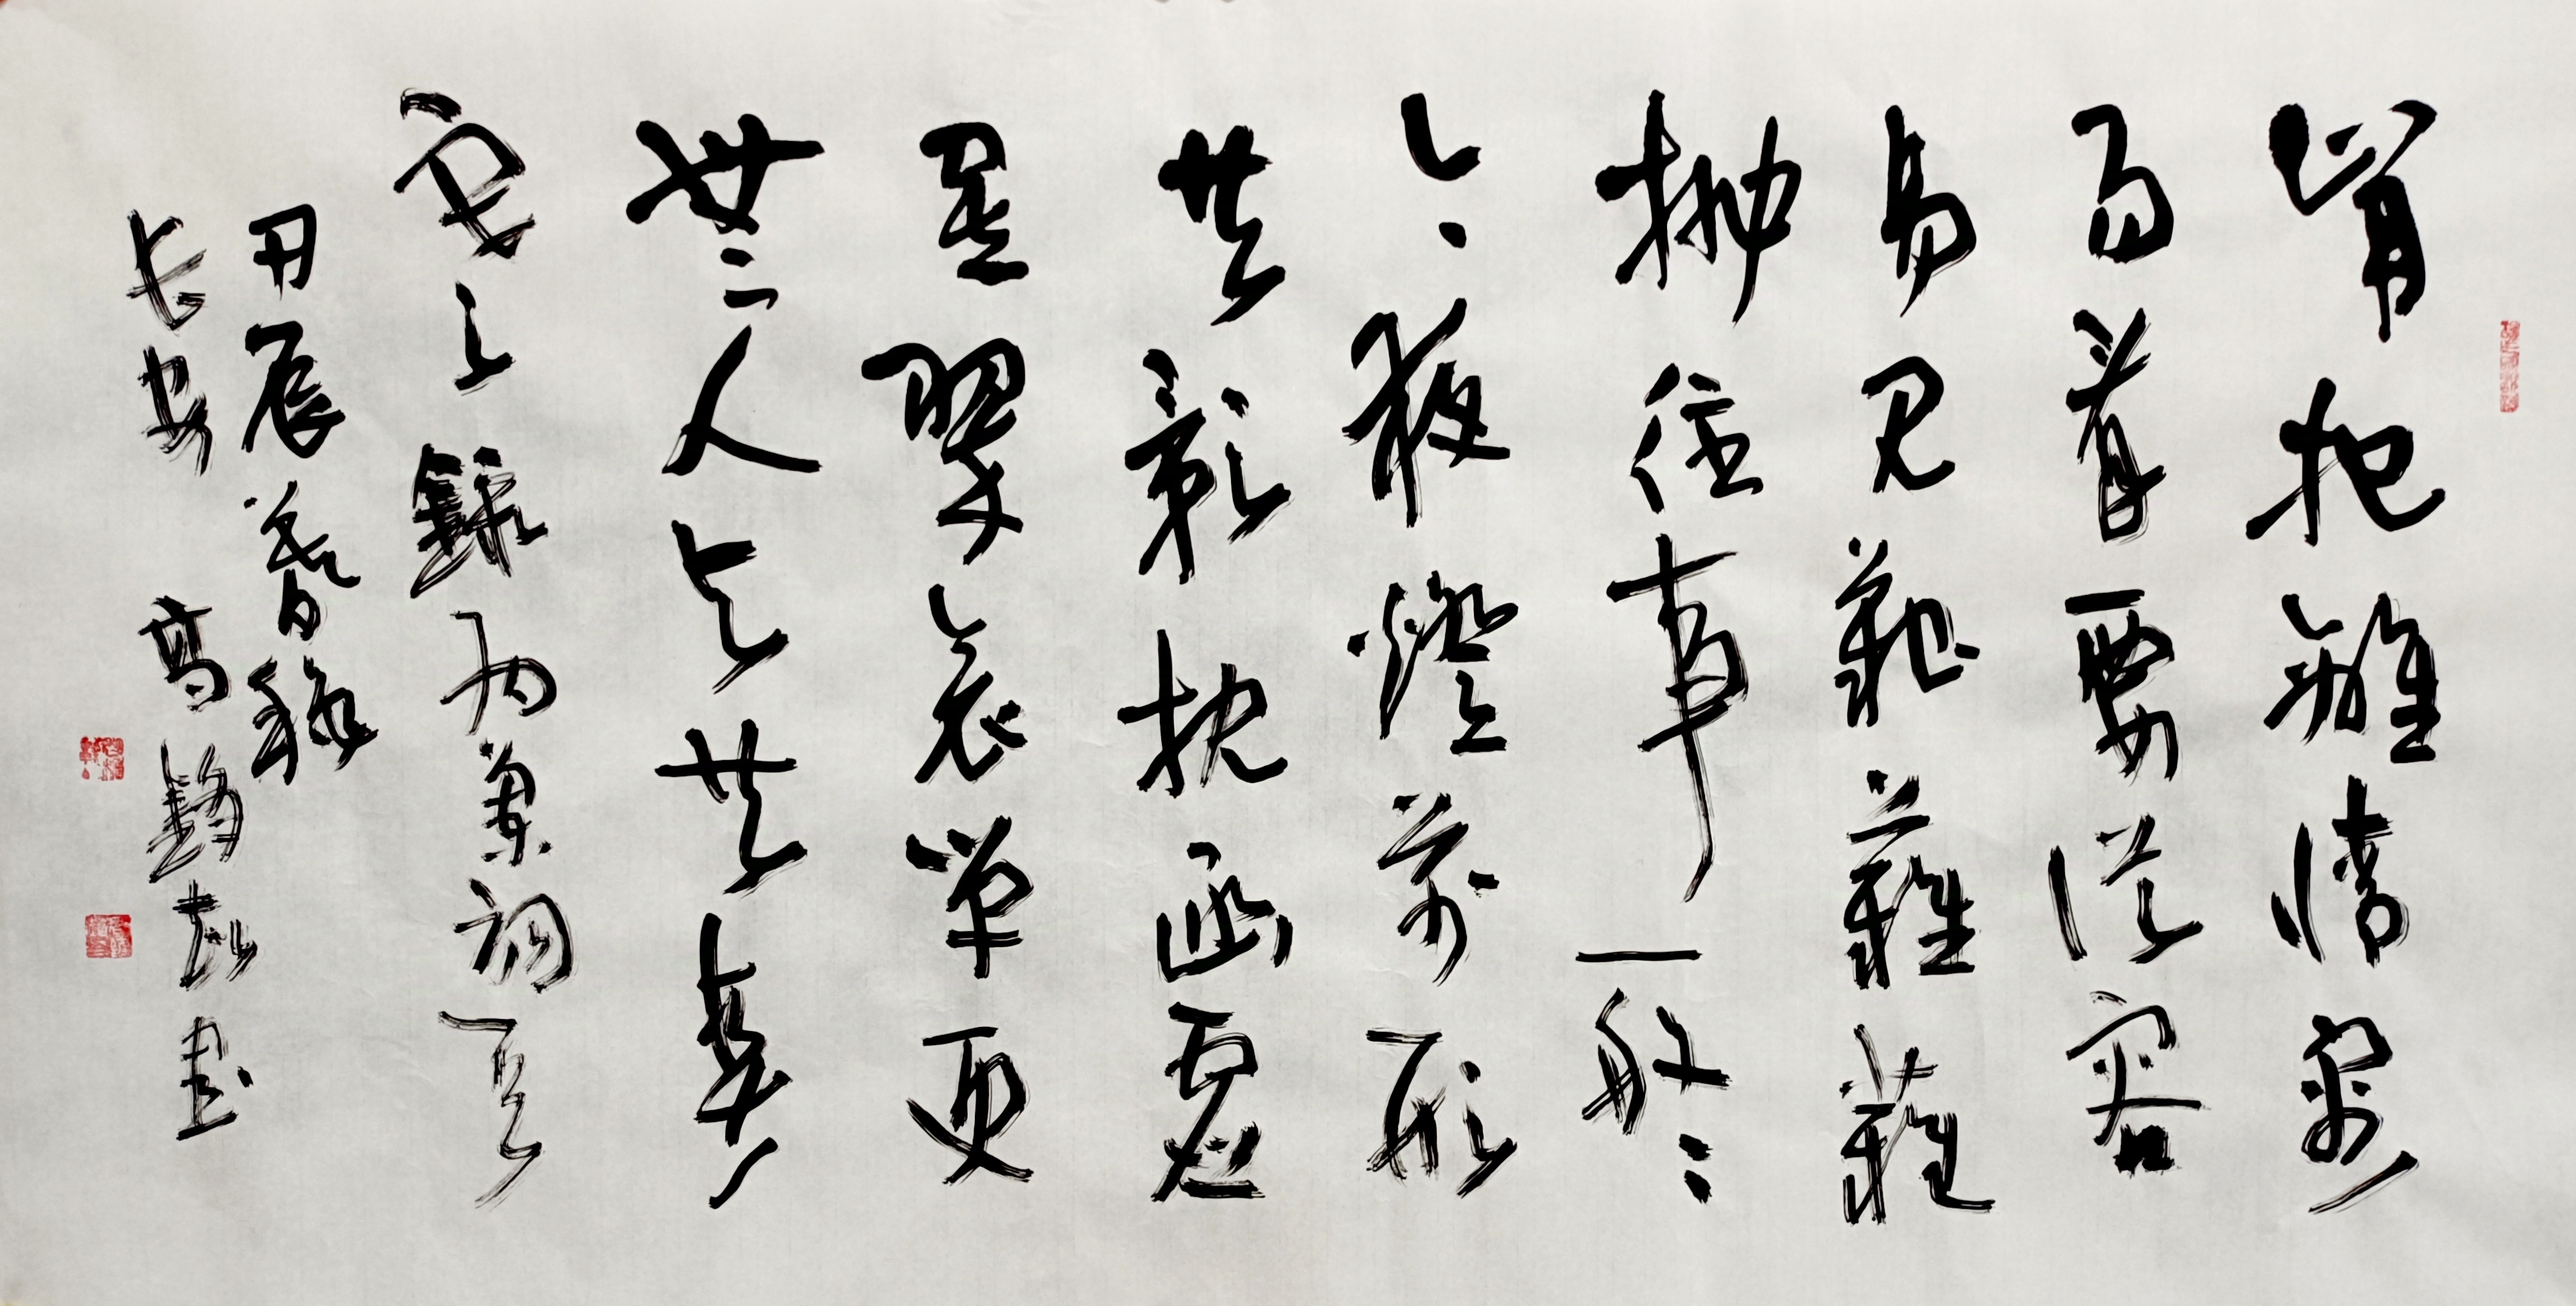 肯把離情容
易看要從容
易見艱難難
抛往事一般々
今夜燈前形
共影枕函虛
置翠衾單更
無人與共春
寒 錄納蘭詞一首
甲辰春
長安 高 書